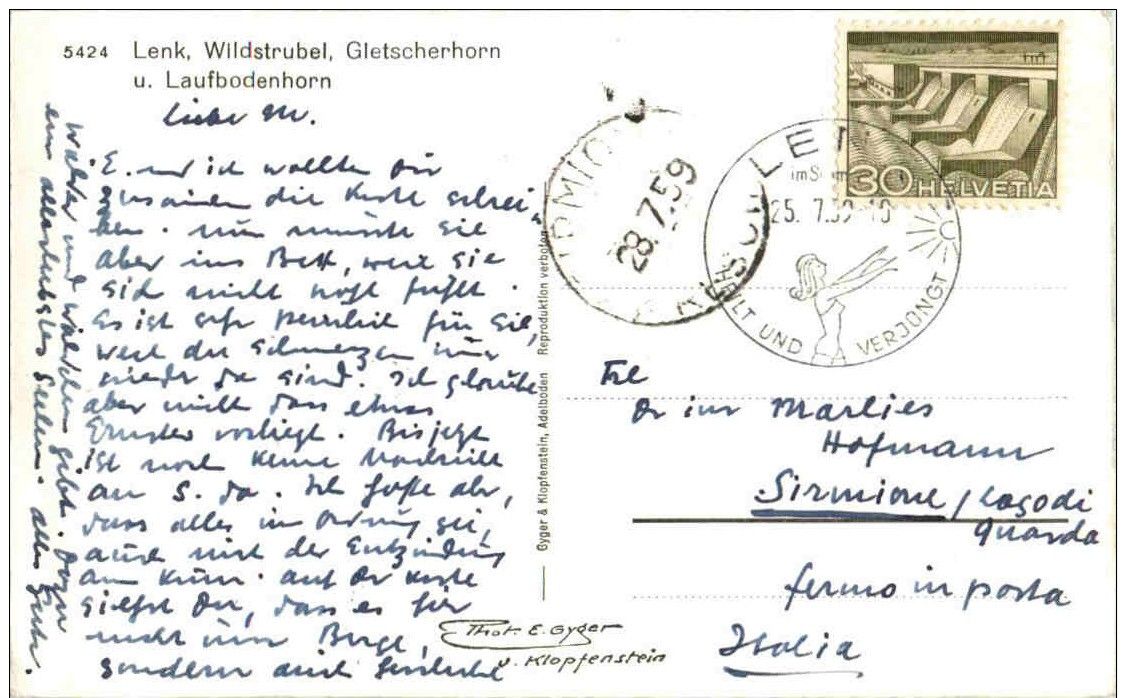 5424 Lenk, Wildstrubel, Gletscherhorn
u. Laufbodenhorn
Liebe M.
E. und ich wollten Dir
zusammen die Karte schrei-
ben. Nun musste sie
aber ins Bett, weil sie
sich nicht wohl fühlt.
Es ist sehr peinlich für sie,
weil die Schmerzen immer
wieder da sind. Ich glaube
aber nicht dass etwas
Ernstes vorliegt. Bis jetzt
ist noch keine Nachricht
an S. da. Ich hoffe aber,
dass alles in Ordnung sei,
auch mit der Entzündung
am Kinn. Auf der Karte
siehst Du, dass es hier
nicht nur Berge,
sondern auch
Wälder und Wäldchen gibt. Dazu
ein allerliebstes Seelein. Alles Gute.
Gyger & Klopfenstein, Adelboden Reproduktion verboten
Phot. E. Gyger
u. Klopfenstein
SIRMIONE
28.7.59
LENK
im Sim
25. 7.59-10
HEILT UND VERJÜNGT
30 HELVETIA
Frl
Dr iur Marlies
Hofmann
Sirmione / Lago di
Guarda
fermo in posta
Italia